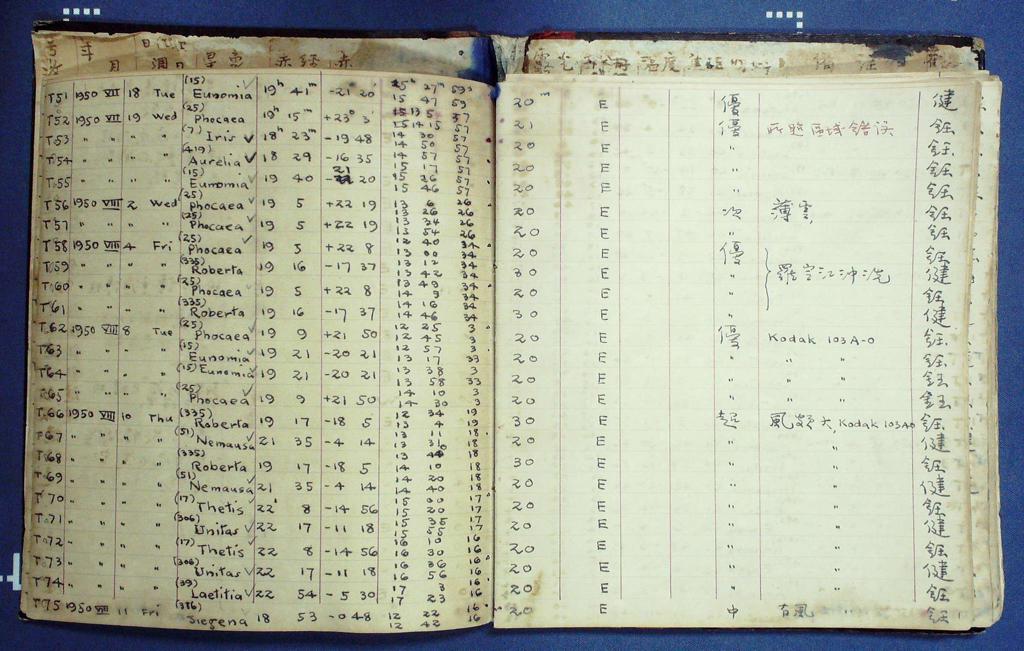 日 星 赤經 赤
月 週日
T51 1950 VII 18 Tue (15) Eunomia ✓ 19h 41m -21 20' 15h 27m 59s 20m E 優 健
15 47 59
T52 1950 VII 19 Wed (25) Phocaea 19h 15m +23° 3 57 21 E 優 區域錯誤 鈺
T53 " " " (7) Iris ✓ 18h 23m -19 48 14 30 57 20 E " 鈺
14 50 57
T54 " " " (419) Aurelia ✓ 18 29 -16 35 14 57 57 20 E " 鈺
15 17 57
T55 " " " (15) Eunomia 19 40 -21 20 15 26 57 20 E " 鈺
15 46 57
T56 1950 VIII 2 Wed (25) Phocaea ✓ 19 5 +22 19 13 6 26 20 E 次 薄雲 鈺
13 26 26
T57 " " " (25) Phocaea 19 5 +22 19 13 34 26 20 E " 鈺
13 54 26
T58 1950 VIII 4 Fri (25) Phocaea ✓ 19 5 +22 8 12 40 34 20 E 優 鈺
13 00 34
T59 " " " (335) Roberta 19 16 -17 37 13 12 34 30 E " 羅定江沖洗 健
13 42 34
T60 " " " (25) Phocaea 19 5 +22 8 34 20 E " 鈺
T61 " " " (335) Roberta 19 16 -17 37 14 16 34 30 E " 健
14 46 34
T62 1950 VIII 8 Tue (25) Phocaea ✓ 19 9 +21 50 12 25 3 20 E 優 Kodak 103A-O 鈺
12 45 3
T63 " " " (15) Eunomia ✓ 19 21 -20 21 12 57 3 20 E " " " 鈺
13 17 33
T64 " " " (15) Eunomia ✓ 19 21 -20 21 13 38 3 20 E " " " 鈺
13 58 33
T65 " " " (25) Phocaea ✓ 19 9 +21 50 14 10 3 20 E " " " 鈺
14 30 3
T66 1950 VIII 10 Thu (335) Roberta 19 17 -18 5 12 34 19 30 E 風 大, Kodak 103AO 鈺
13 4 19
T67 " " " (51) Nemausa ✓ 21 35 -4 14 13 11 18 20 E " " 健
13 31 18
T68 " " " (335) Roberta 19 17 -18 5 13 40 18 30 E " " 鈺
14 10 18
T69 " " " (51) Nemausa ✓ 21 35 -4 14 14 20 18 20 E " " 健
14 40 18
T70 " " " (17) Thetis ✓ 22 8 -14 56 15 00 17 20 E " " 鈺
15 20 17
T71 " " " (306) Unitas ✓ 22 17 -11 18 15 35 17 20 E " " 健
15 55 16
T72 " " " (17) Thetis ✓ 22 8 -14 56 16 10 16 20 E " " 鈺
16 30 16
T73 " " " (306) Unitas ✓ 22 17 -11 18 16 36 16 20 E " " 健
16 56 16
T74 " " " (39) Laetitia ✓ 22 54 -5 30 17 3 16 20 E " " 鈺
17 23 16
T75 1950 VIII 11 Fri Siegena 18 53 -0 48 12 22 16 20 E 中 有風 " 鈺
12 42 16